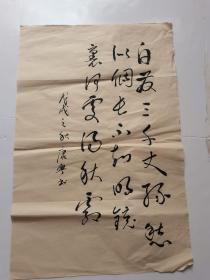 白发三千丈缘愁
似个长不知明镜
里何处得秋霜
戊戌之秋
书